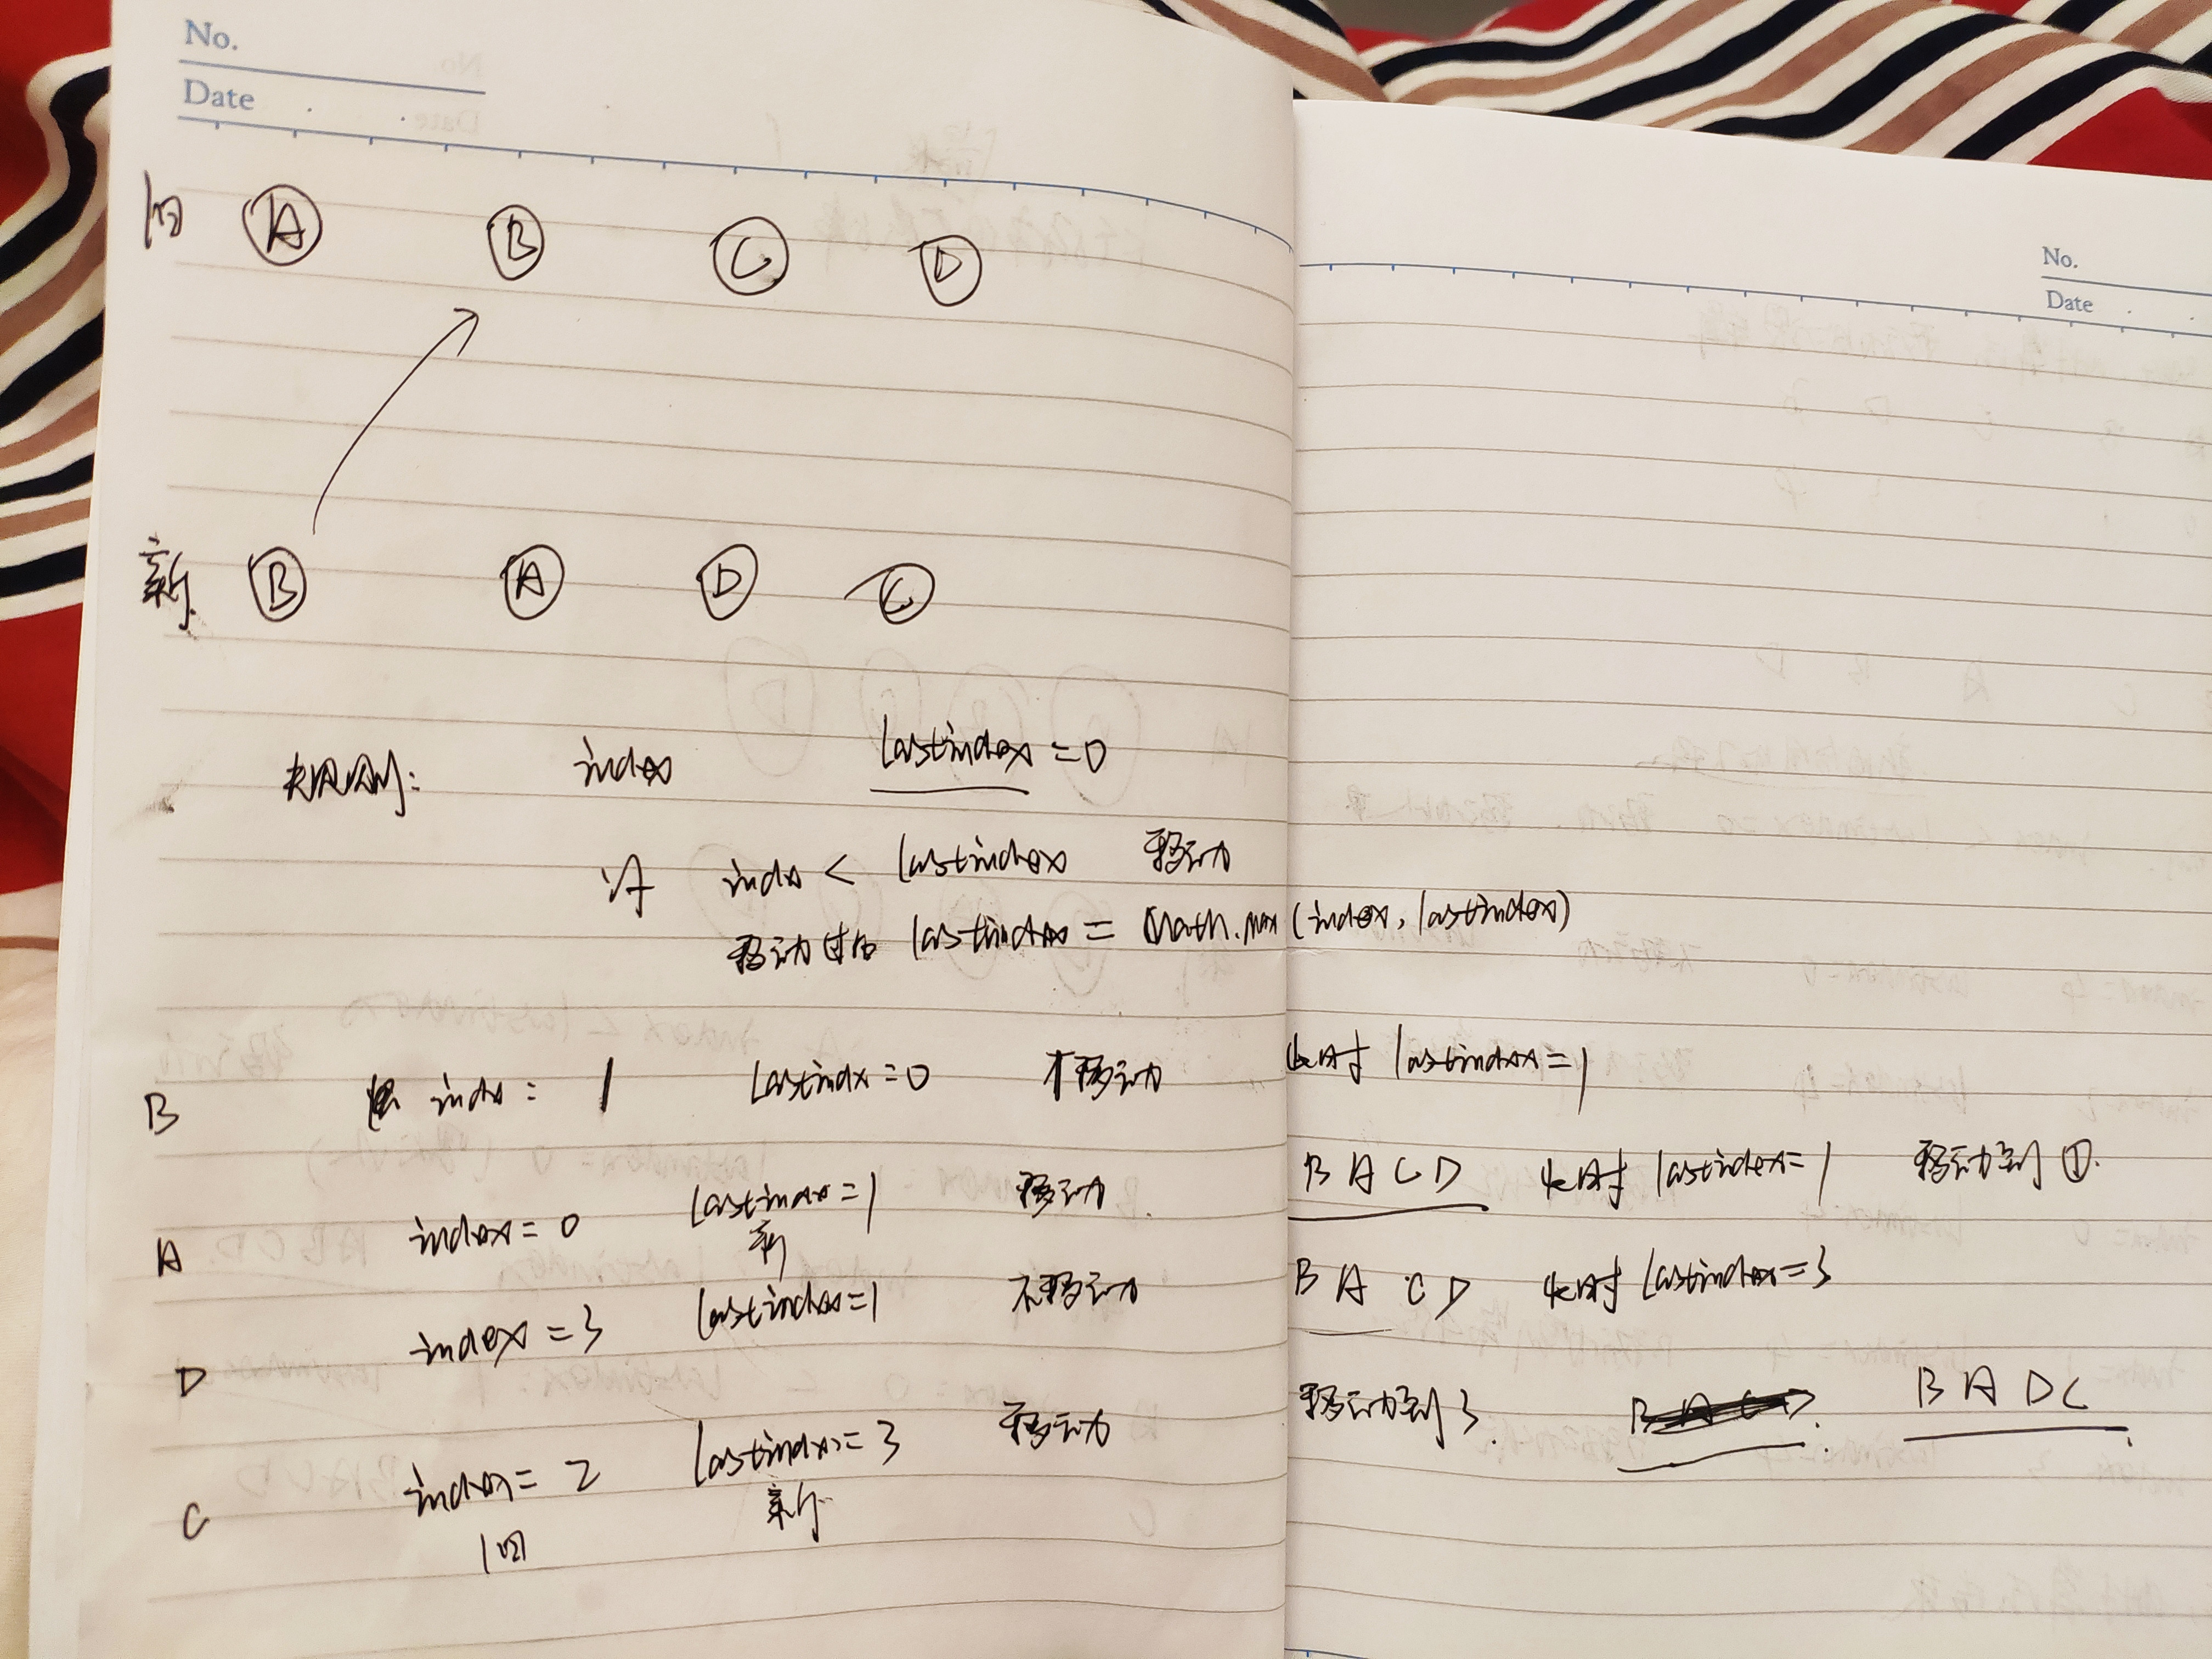 No.
Date
旧 A B C D
No.
Date
新 B A D C
规则: index lastindex = 0
index < lastindex 移动
移动过后 lastindex = Math.max (index, lastindex)
B index = 1 lastindx = 0 不移动 此时 lastindex = 1
A index = 0 lastindex = 1 移动 B A C D 此时 lastindex = 1 移动到 ①.
新
D index = 3 lastindex = 1 不移动 B A C D 此时 lastindex = 3
C index = 2 lastindex = 3 移动 移动到 3. B A D C
旧 新